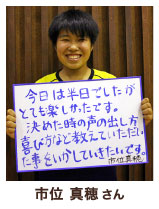 今日は半日でしたが
とても楽しかったです。
決めた時の声の出し方
喜び方など教えていただい
た事をいかしていきたいです。
市位真穂
市位 真穂 さん